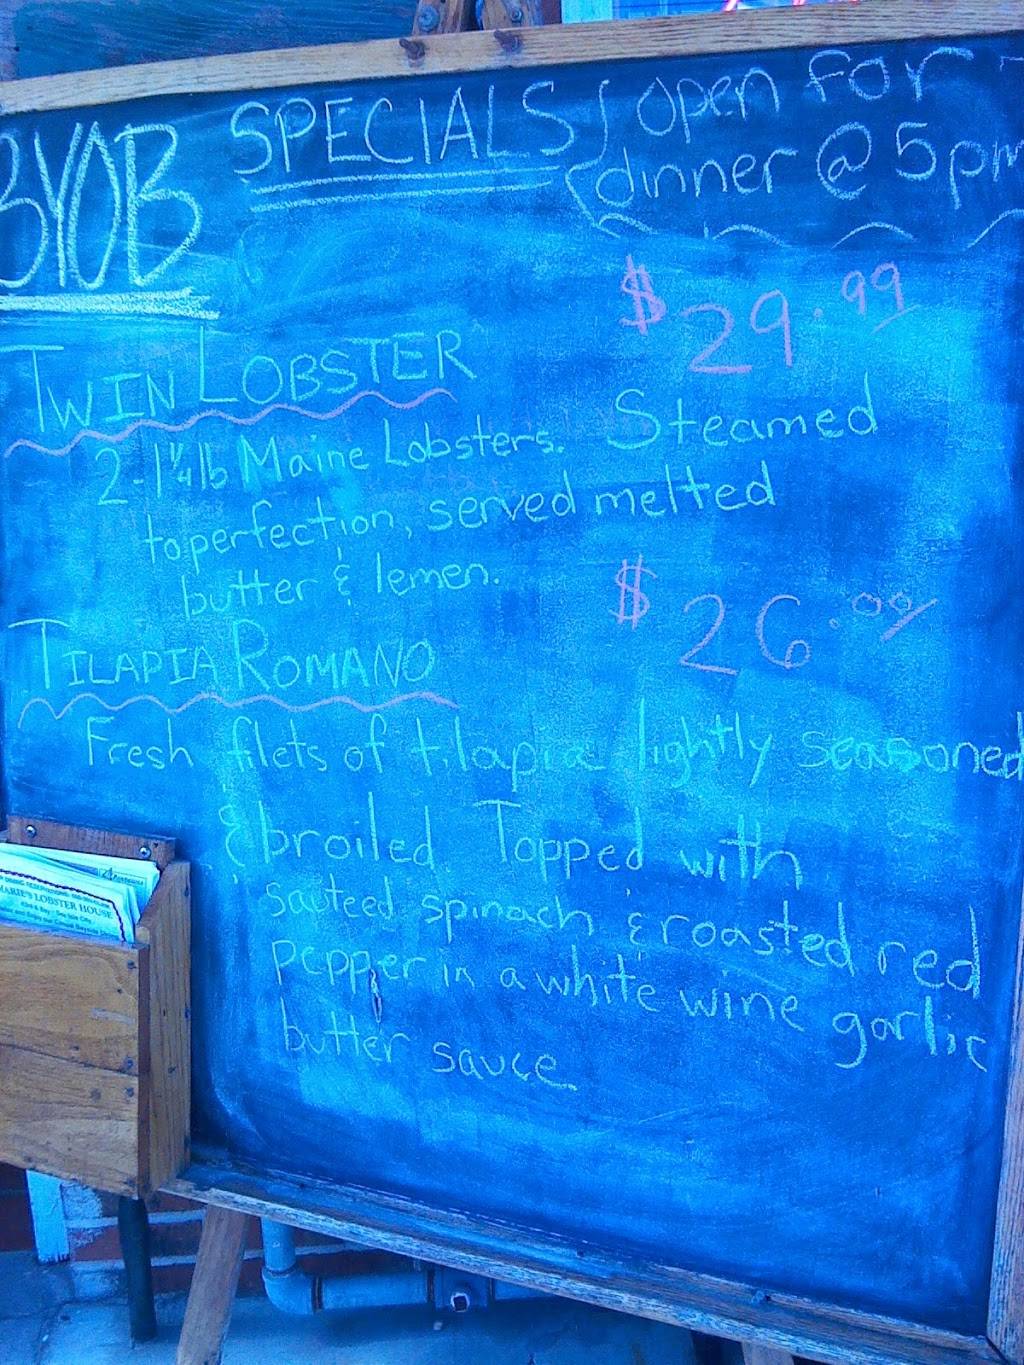 BYOB
SPECIALS
open for
dinner @ 5pm
$29.99
TWIN LOBSTER
2-1 1/4 lb Maine Lobsters. Steamed
to perfection, served melted
butter & lemen.
$26.00
TILAPIA ROMANO
Fresh filets of tilapia lightly seasoned
& broiled Topped with
sauteed spinach & roasted red
pepper in a white wine garlic
butter sauce
MARIE'S LOBSTER HOUSE